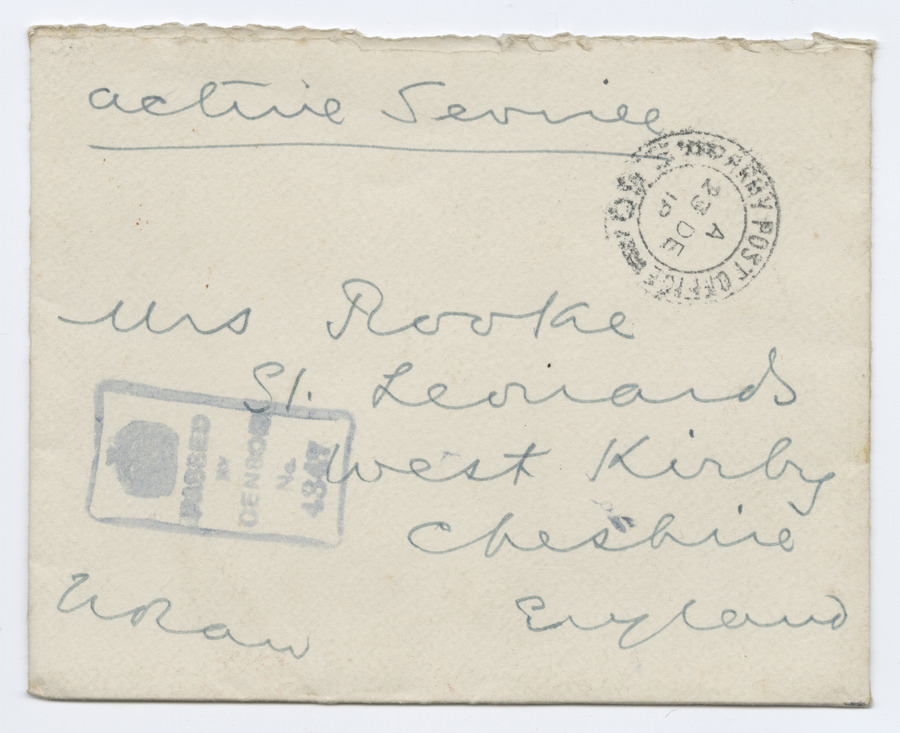 Active Service
ARMY POST OFFICE
A
23 DE
18
Mrs Rooke
St. Leonards
West Kirby
Cheshire
England
PASSED
BY
CENSOR
No.
4347